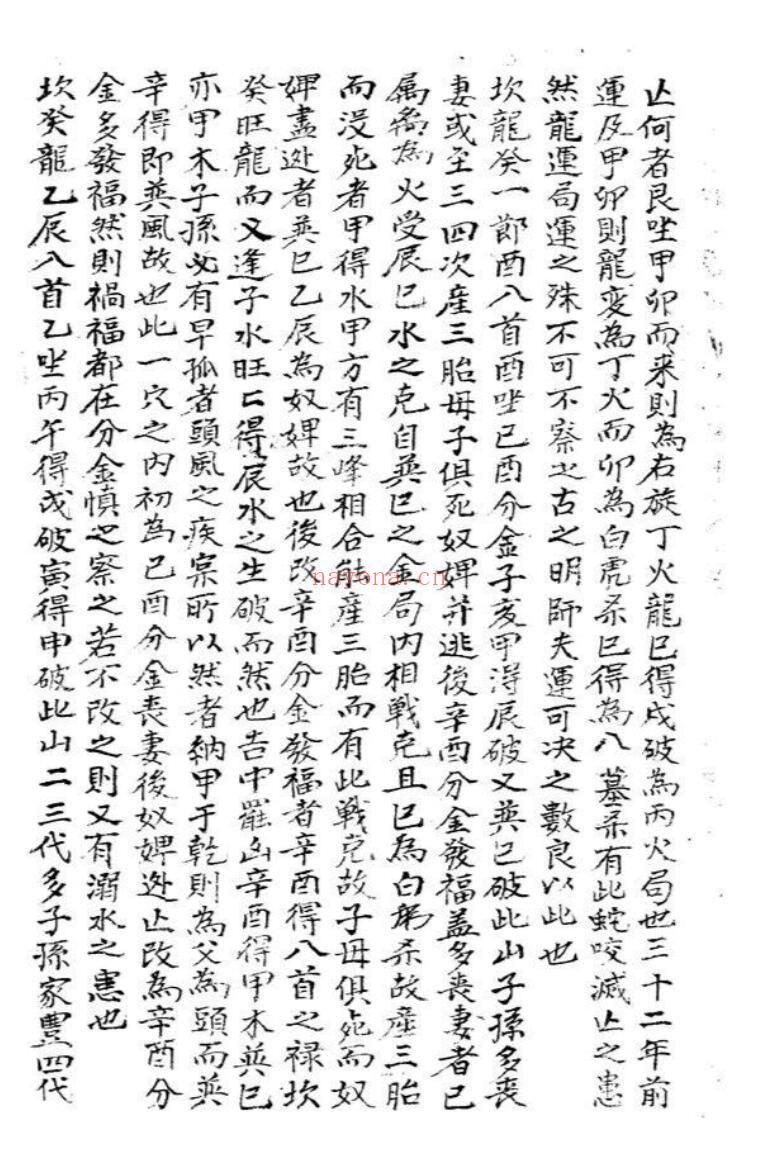 亾何者艮坐甲卯而来則為右旋丁火龍巳得戌破為丙火局也三十二年前
運及甲卯則龍変為丁火而卯為白虎杀巳得為八墓杀有此蛇咬滅亾之患
然龍運局運之殊不可不察也古之明師夫運可决之數良以此也
坎龍癸一節酉八首酉坐己酉分金子亥甲得辰破又巽巳破此山子孫多喪
妻或至三四次産三胎母子俱死奴婢并逃後辛酉分金發福盖多喪妻者己
属禽為火受辰巳水之克自巽巳之金局内相戰克且巳為白虎杀故産三胎
而没死者甲得水甲方有三峰相合能産三胎而有此戰克故子母俱死而奴
婢盡逊者巽巳乙辰為奴婢故也後改辛酉分金發福者辛酉得八首之禄坎
癸旺龍而又逢子水旺亡得辰水之生破而然也告中罷出辛酉得甲木巽巳
亦甲木子孫必有早孤者頭風之疾寀所以然者納甲于乾則為父為頭而巽
辛得即巽風故也此一穴之内初為己酉分金喪妻後奴婢逊亾改為辛酉分
金多發福然則禍福都在分金慎也察之若不改之則又有溺水之患也
坎癸龍乙辰八首乙坐丙午得戌破寅得申破此山二三代多子孫家豊四代
nayona.cn